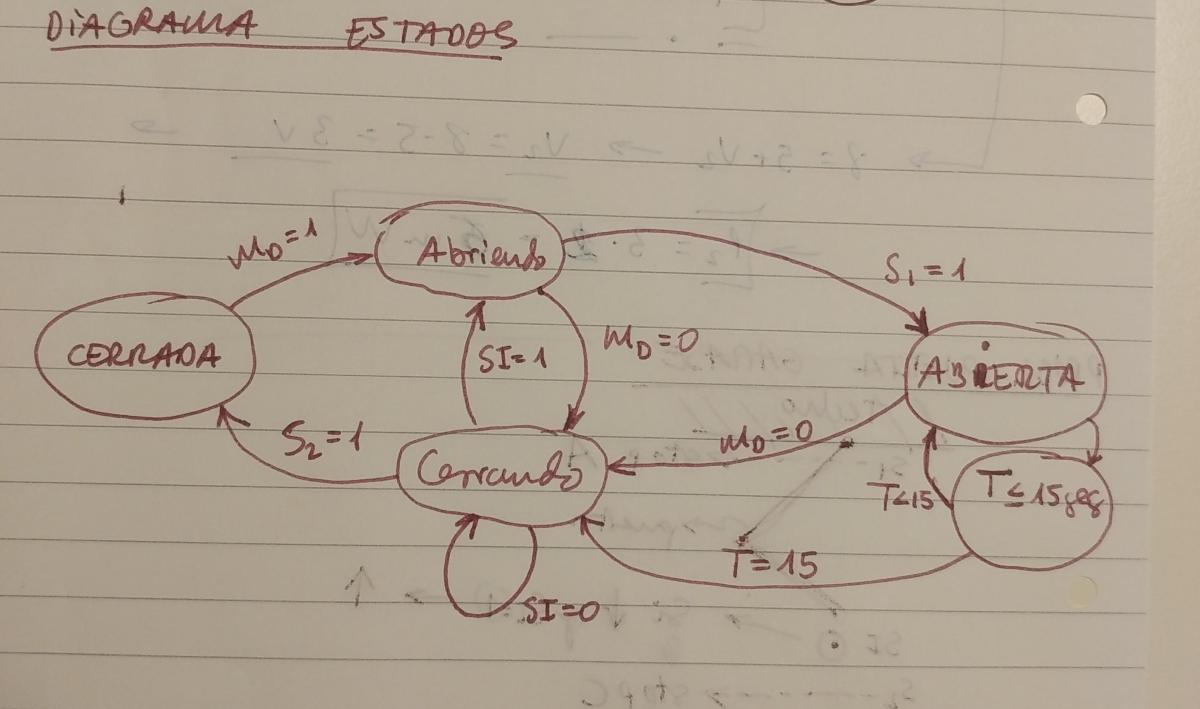 DIAGRAMA ESTADOS
MD=1
Abriendo
S1=1
CERRADA
SI=1
MD=0
ABIERTA
S2=1
MD=0
Cerrando
T<15
T≤15seg
T=15
SI=0